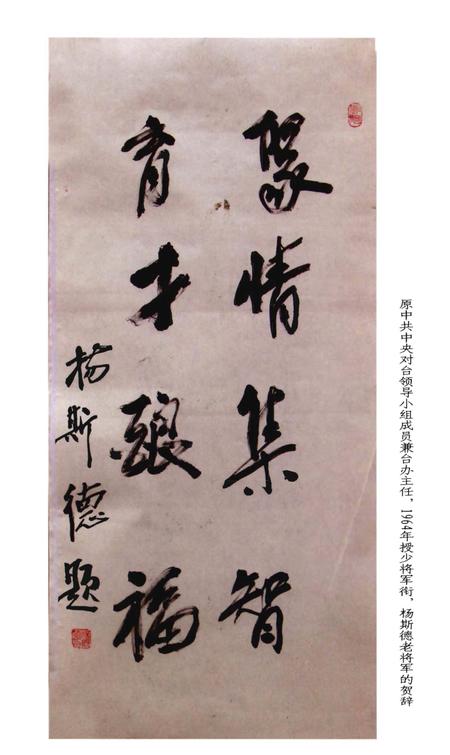 聚情集智
育才酿福
杨斯德题
原中共中央对台领导小组成员兼台办主任，1964年授少将军衔，杨斯德老将军的贺辞